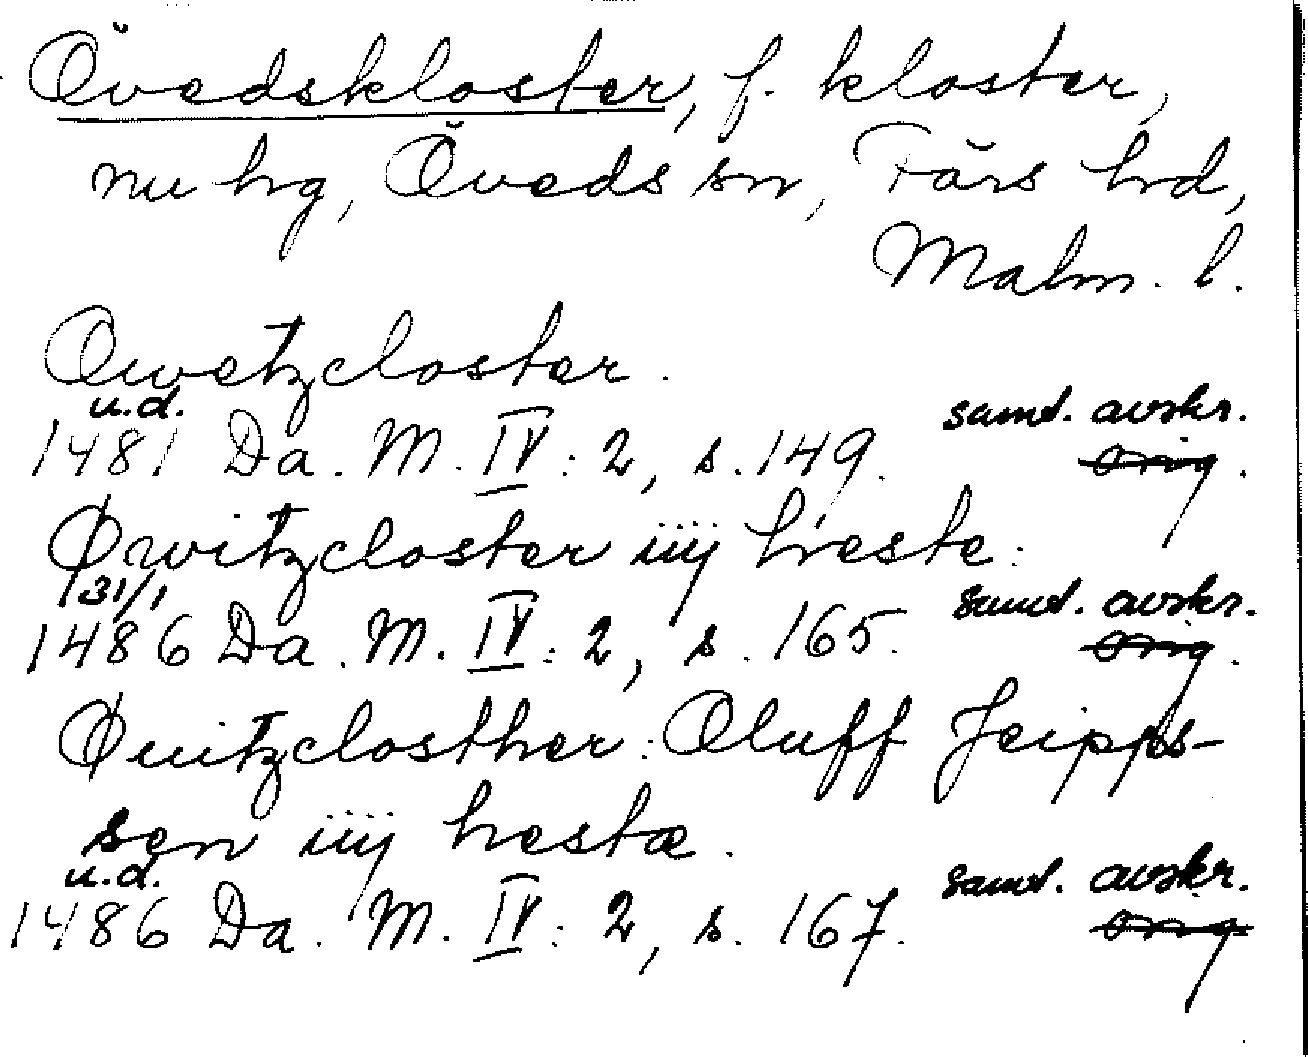 Övedskloster, f. kloster,
nu hrg, Öveds sn, Färs hrd,
Malm. l.
Owetzcloster.
u.d. samt. avskr.
1481 Da. M. IV: 2, s. 149. orig.
Øwitzcloster iiij hæste:
31/1 samt. avskr.
1486 Da. M. IV: 2, s. 165. orig.
Øuitzclosther: Oluff Jeipps-
sen iiij hestæ.
u.d. samt. avskr.
1486 Da. M. IV: 2, s. 167. orig